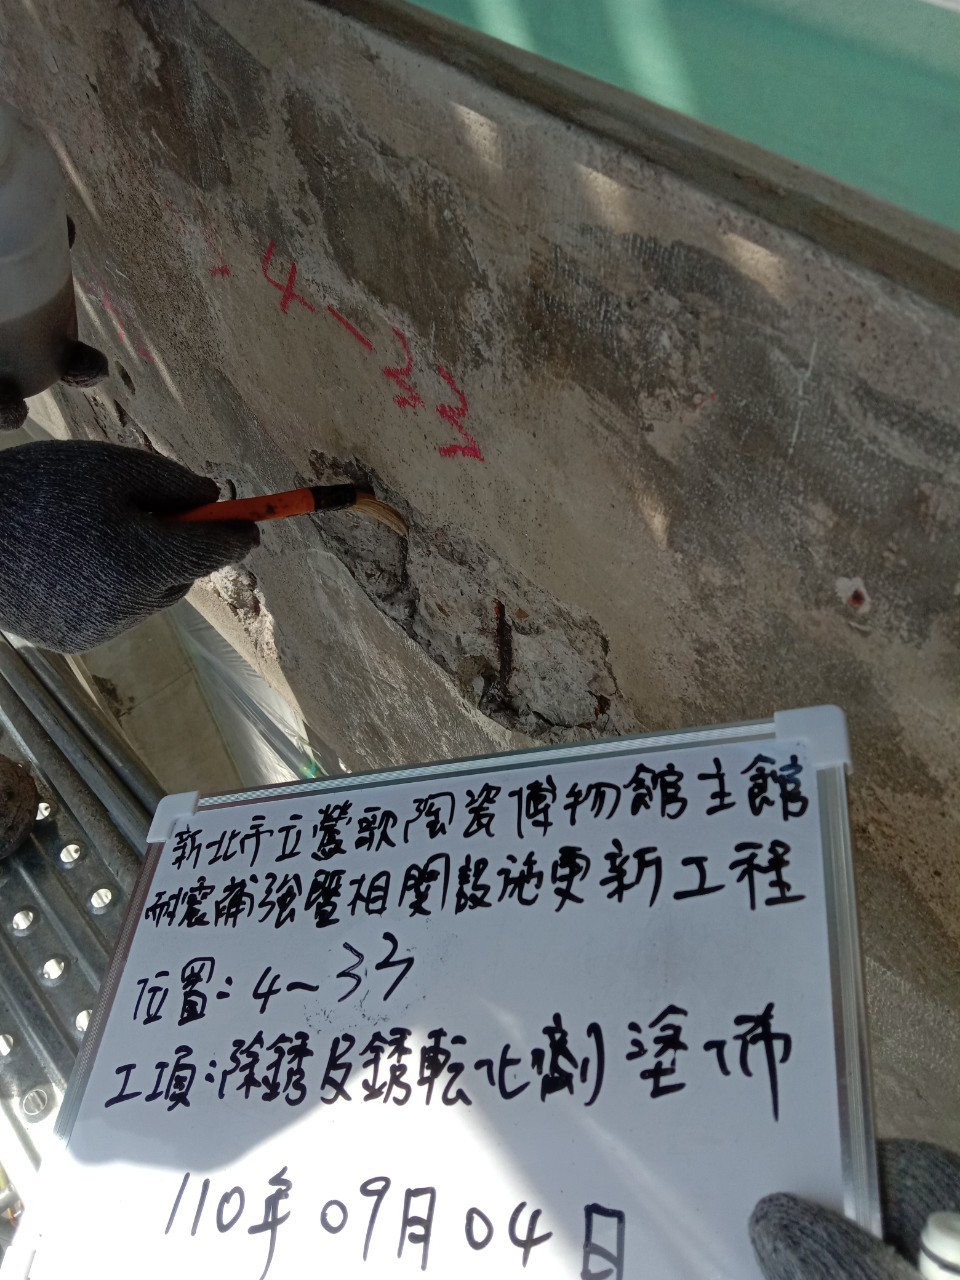 4-33
新北市立鶯歌陶瓷博物館主館
耐震補強暨相關設施更新工程
位置:4~33
工項:除銹及銹転化劑塗佈
110年09月04日